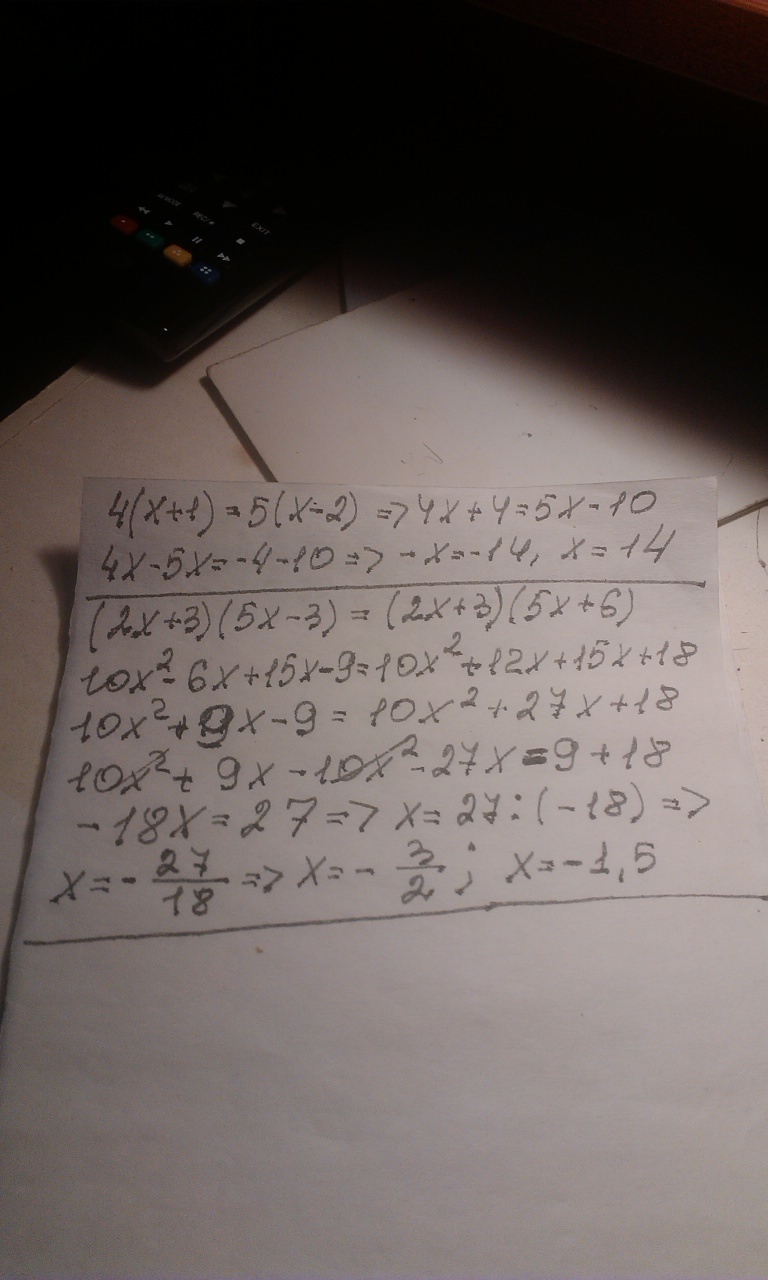 REC/●
EXIT
4(x+1)=5(x-2) => 4x+4=5x-10
4x-5x=-4-10=> -x=-14, x=14
(2x+3)(5x-3) = (2x+3)(5x+6)
10x²-6x+15x-9=10x²+12x+15x+18
10x²+9x-9= 10x²+27x+18
10x²+ 9x -10x²-27x =9+18
-18x=27 => x=27:(-18) =>
x=-27/18 => x=-3/2; x=-1,5